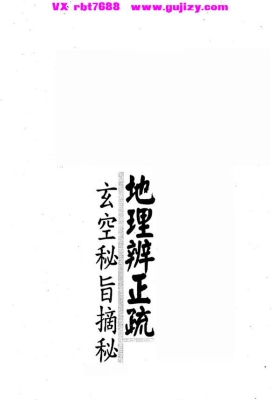 VX rbt7688  www.gujizy.com
地理辨正疏
玄空秘旨摘秘